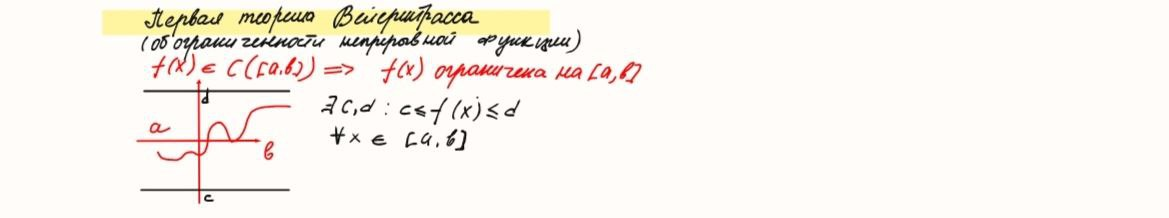 Первая теорема Вейерштрасса
(об ограниченности непрерывной функции)
f(x) ∈ C([a,b]) => f(x) ограничена на [a,b]
d
∃ c,d : c ≤ f(x) ≤ d
a
∀ x ∈ [a,b]
b
c